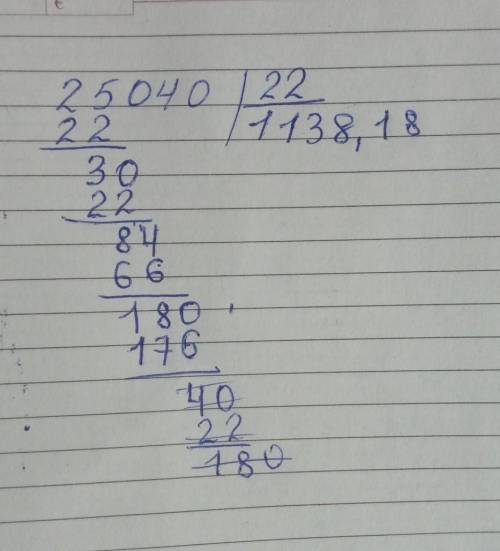 25040 22
22 1138,18
30
22
84
66
180
176
40
22
180